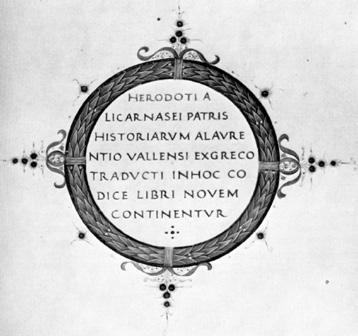 HERODOTI A
LICARNASEI PATRIS
HISTORIARVM ALAVRE
NTIO VALLENSI EXGRECO
TRADVCTI INHOC CO
DICE LIBRI NOVEM
CONTINENTVR